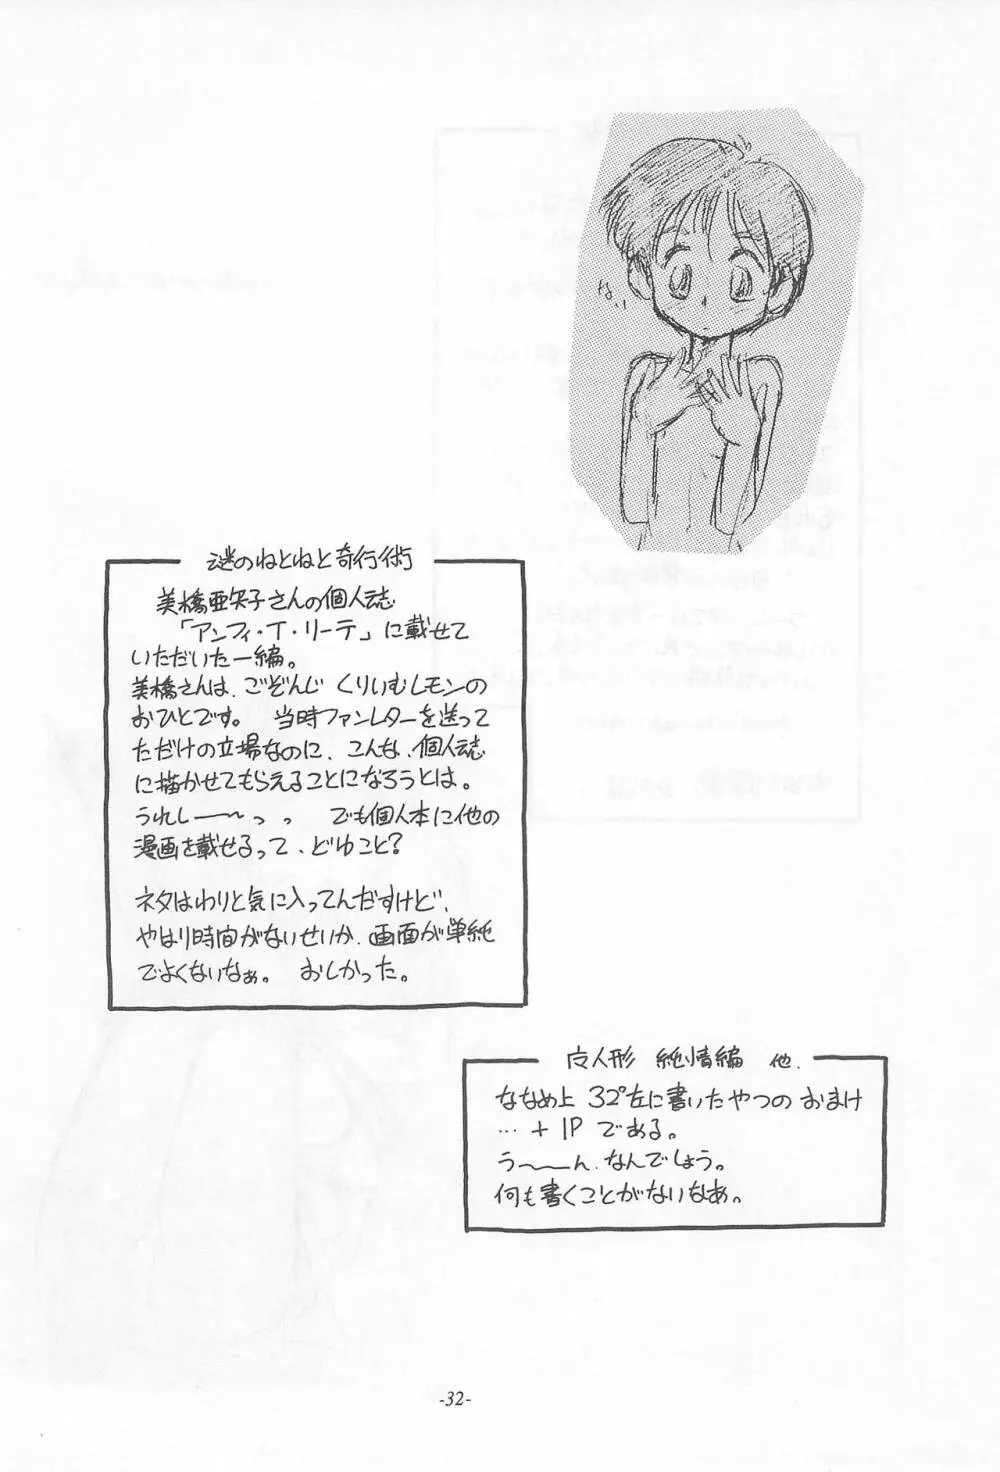 な、、
謎のねとねと奇行術
美橋亜矢子さんの個人誌
「アンフィ・T・リーテ」に載せて
いただいた一編。
美橋さんは、ごぞんじ くりいむレモンの
おひとです。 当時ファンレターを送って
ただけの立場なのに、こんな、個人誌
に描かせてもらえることになろうとは。
うれしー〜っっ でも個人本に他の
漫画を載せるって、どゆこと?
ネタはわりと気に入ってんだすけど、
やはり時間がないせいか、画面が単純
でよくないなぁ。 おしかった。
人形 純情編 他.
ななめ上 32P左に書いたやつの おまけ
…+1P である。
う〜ん、なんでしょう。
何も書くことがないなあ。
-32-